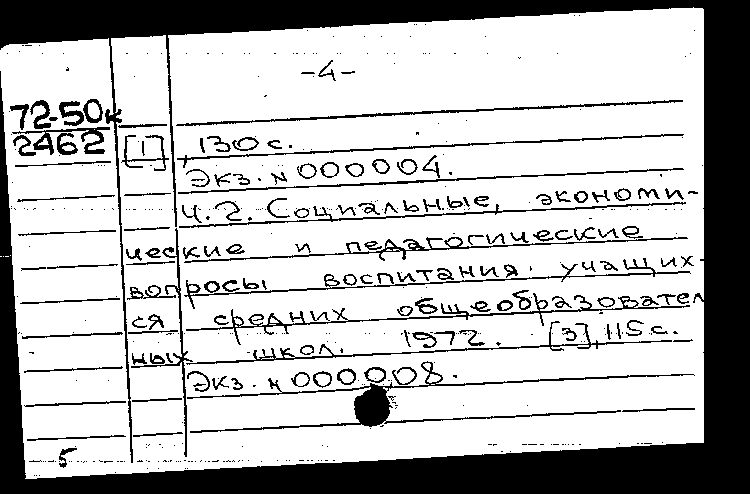 -4-
72-50к
2462
[1], 130 с.
Экз. N 000004.
Ч. 2. Социальные, экономи-
ческие и педагогические
вопросы воспитания учащих-
ся средних общеобразовател
ных школ. 1972. [3], 115 с.
Экз. N 000008.
5